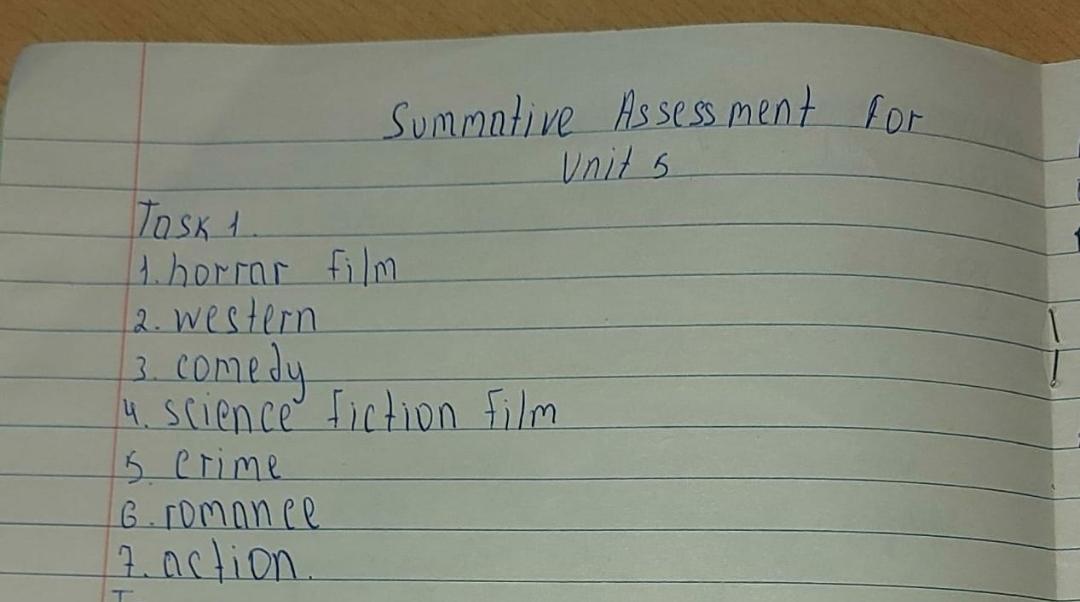 Summative Assessment for
Unit 5
Task 1.
1. horrar film
2. western
3. comedy
4. science fiction film
5. crime
6. romance
7. action.